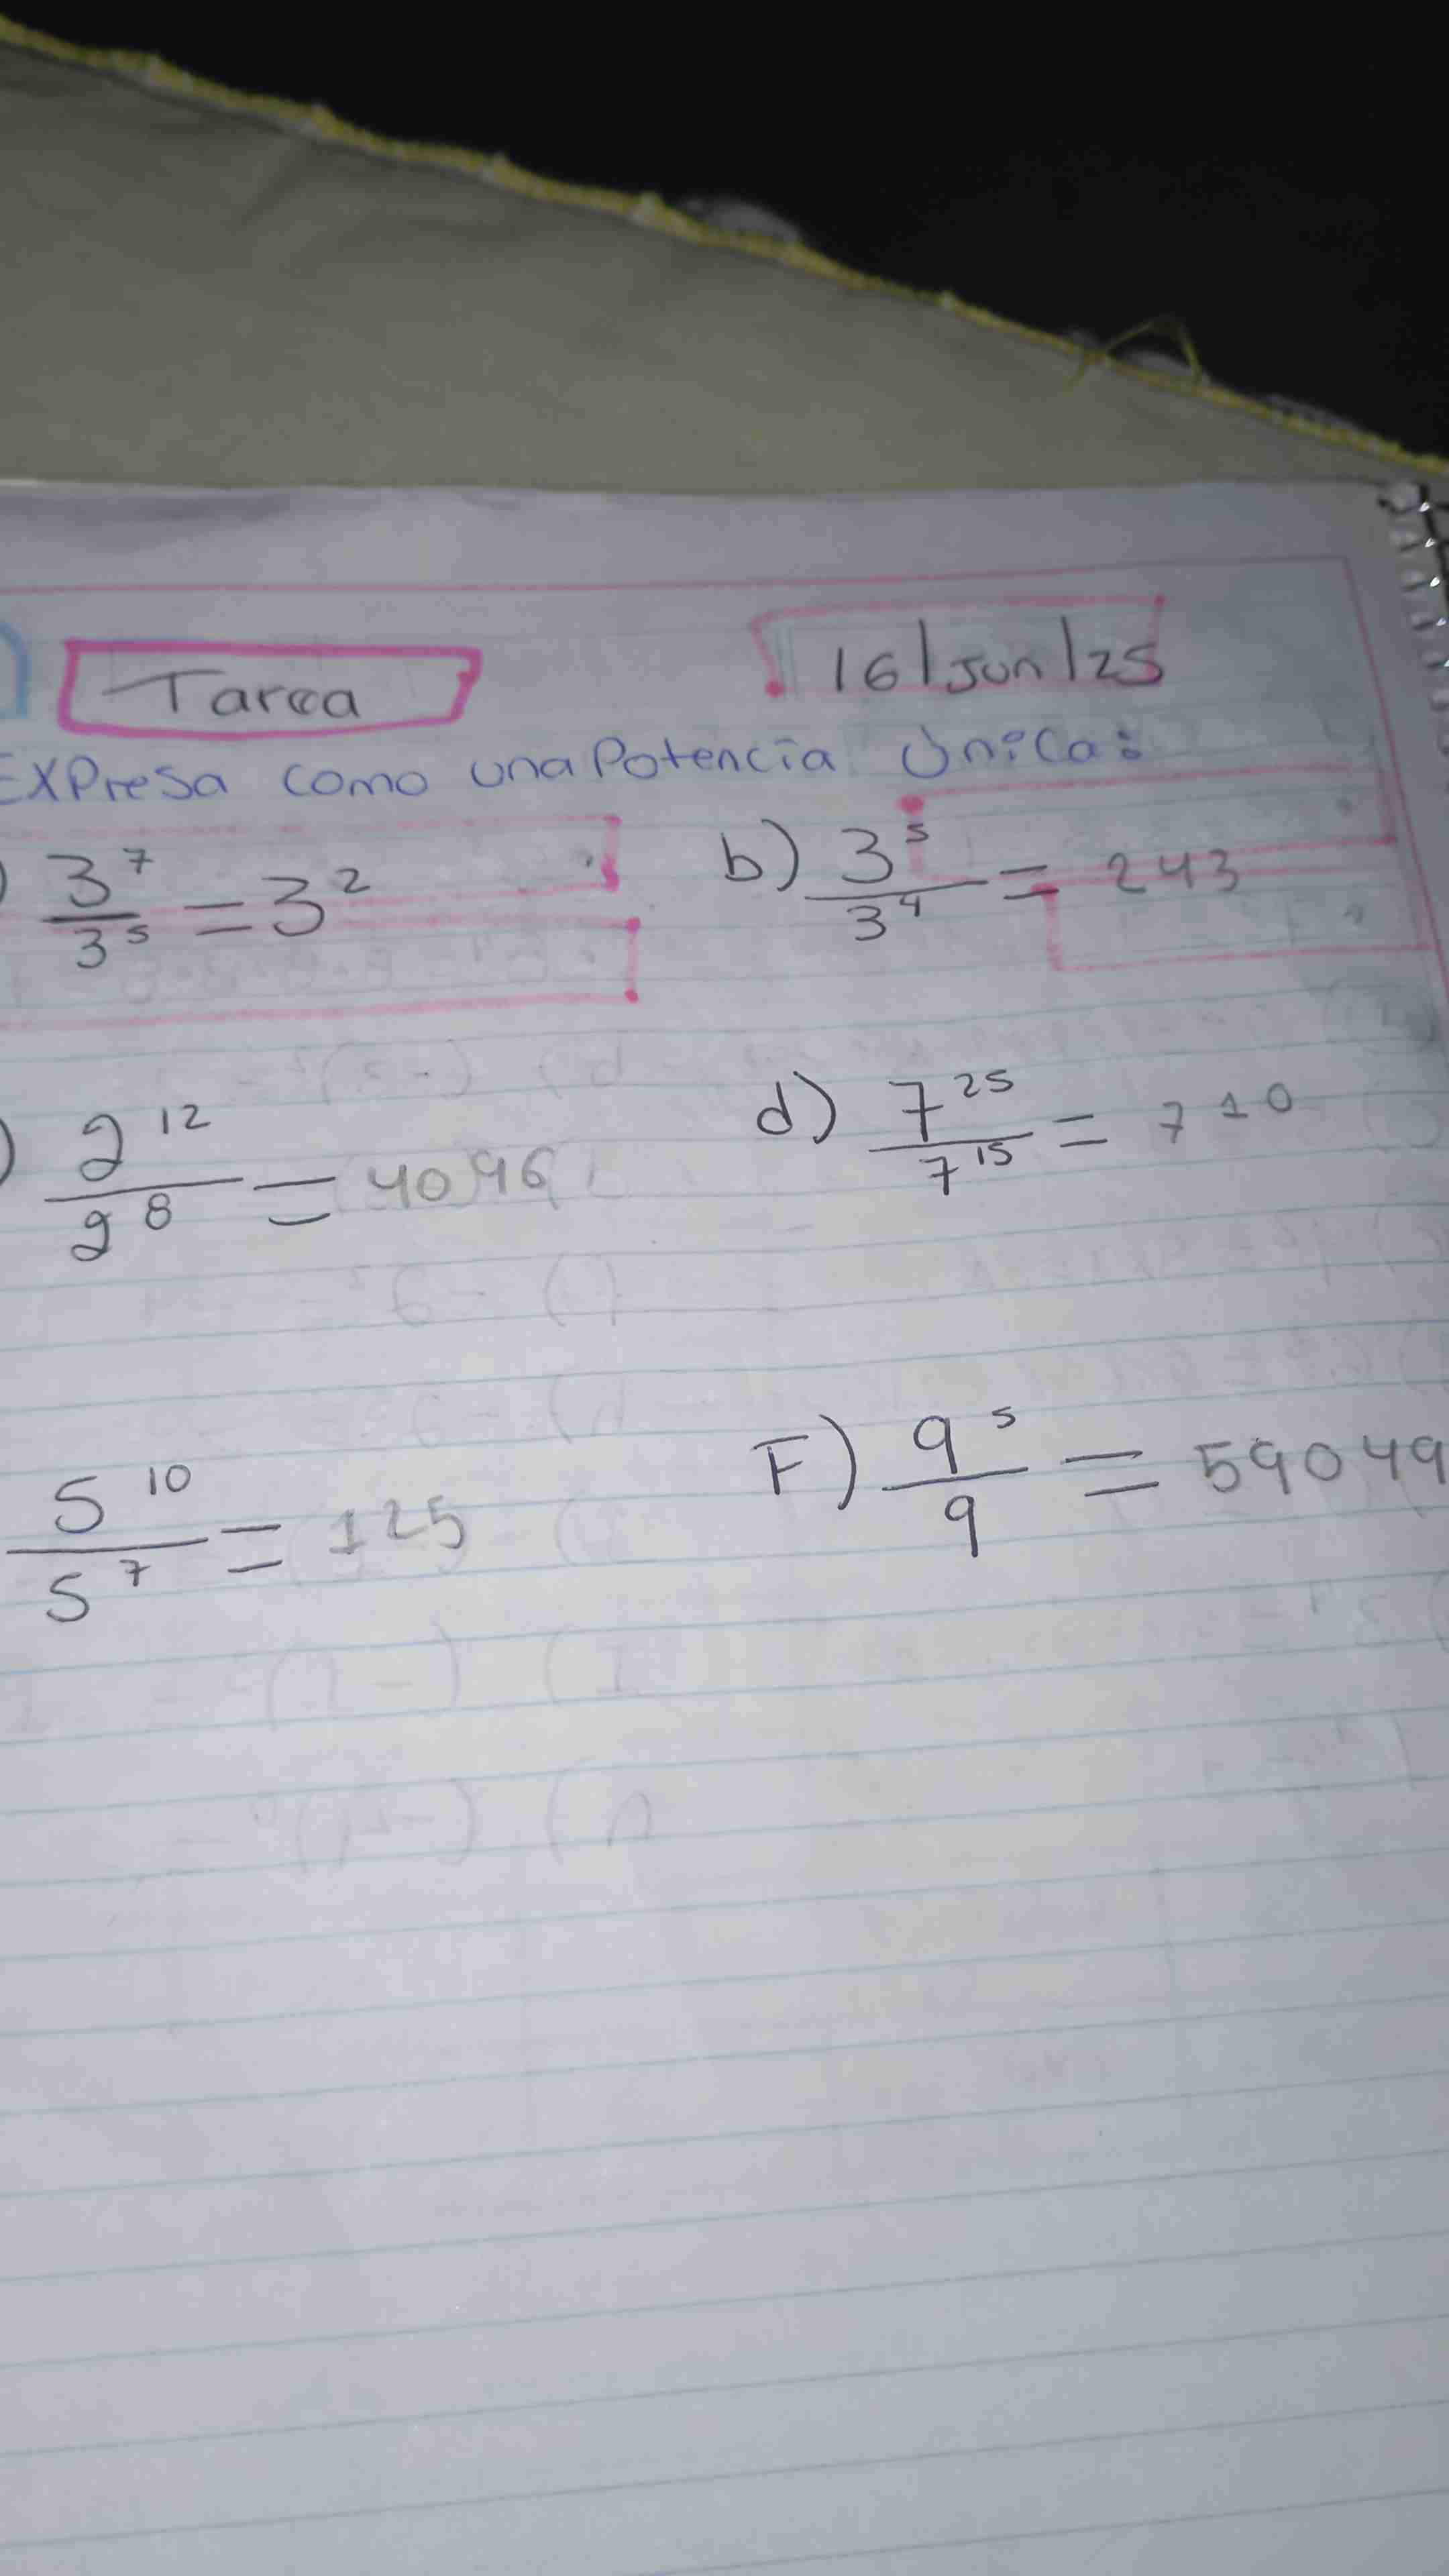 Tarea
16/Jun/25
Expresa como una Potencia Única:
) 3^7/3^5 = 3^2
b) 3^5/3^4 = 243
) 2^12/2^8 = 4096
d) 7^25/7^15 = 7^10
5^10/5^7 = 125
F) 9^5/9 = 59049